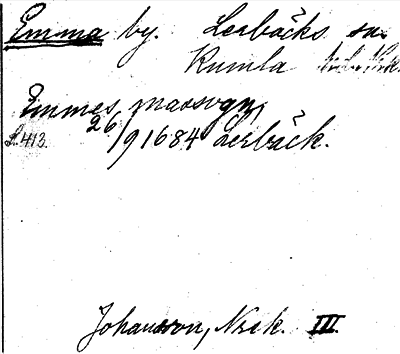 Emma by. Lerbäcks sn.
Kumla
Emmes massugn,
L. 413. 26/9 1684 Lerbäck.
Johansson, Nrck. III.